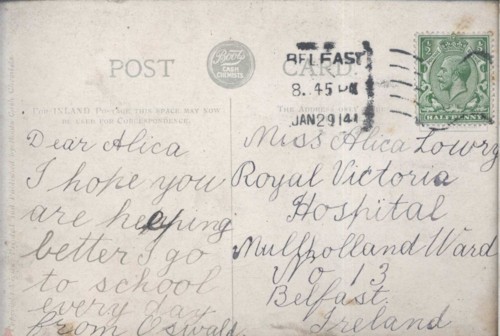 POST CARD.
Boots
CASH
CHEMISTS
BELFAST
8.45 PM
JAN 29 14
HALFPENNY
FOR INLAND POSTAGE THIS SPACE MAY NOW
BE USED FOR CORRESPONDENCE.
THE ADDRESS ONLY
Dear Alica
I hope you
are heeping
better I go
to school
every day
from Oswald
Miss Alica Lowry
Royal Victoria
Hospital
Mullholland Ward
No 13
Belfast.
Ireland